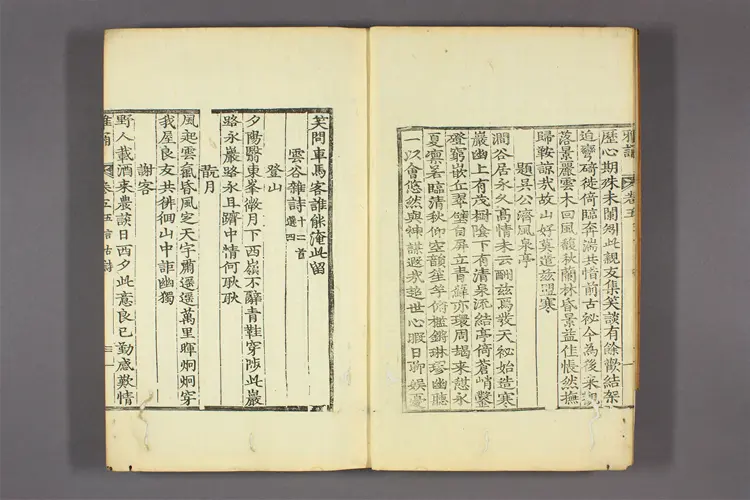 雅誦 卷五
歷心期殊未闌矧此親友集笑談有餘歡結架
迫彎碕徙倚臨奔湍共惜前古秘今為後來觀
落景麗雲木回風馥秋蘭林昏景益佳悵然撫
歸鞍諒哉故山好莫遣茲盟寒
題吳公濟風泉亭
澗谷居永久高情未云酬茲焉發天秘始造寒
巖幽上有茂樹陰下有清泉流結亭倚蒼峭鑿
磴窮嶔丘翠壁自屏立青蘚亦環周朅來憩永
夏凜若臨清秋仰空韻笙竽俯檻鏘琳璆幽聽
一以會悠然與神謀邈哉超世心暇日聊娛憂
笑問車馬客誰能淹此留
雲谷雜詩 十二首選四
登山
夕陽翳東峯微月下西嶺不辭青鞋穿陟此巖
路永巖路永且躋中情何耿耿
翫月
風起雲氛昏風定天宇肅遙遙萬里暉炯炯穿
我屋良友共徘徊山中詎幽獨
謝客
野人載酒來農談日西夕此意良已勤感歎情
雅誦 卷之五 五言古詩